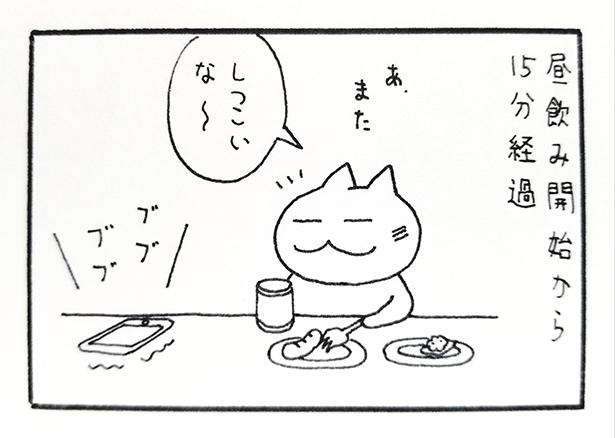 昼飲み開始から
15分経過
あ、
また
しつこい
な〜
ブブ
ブブ